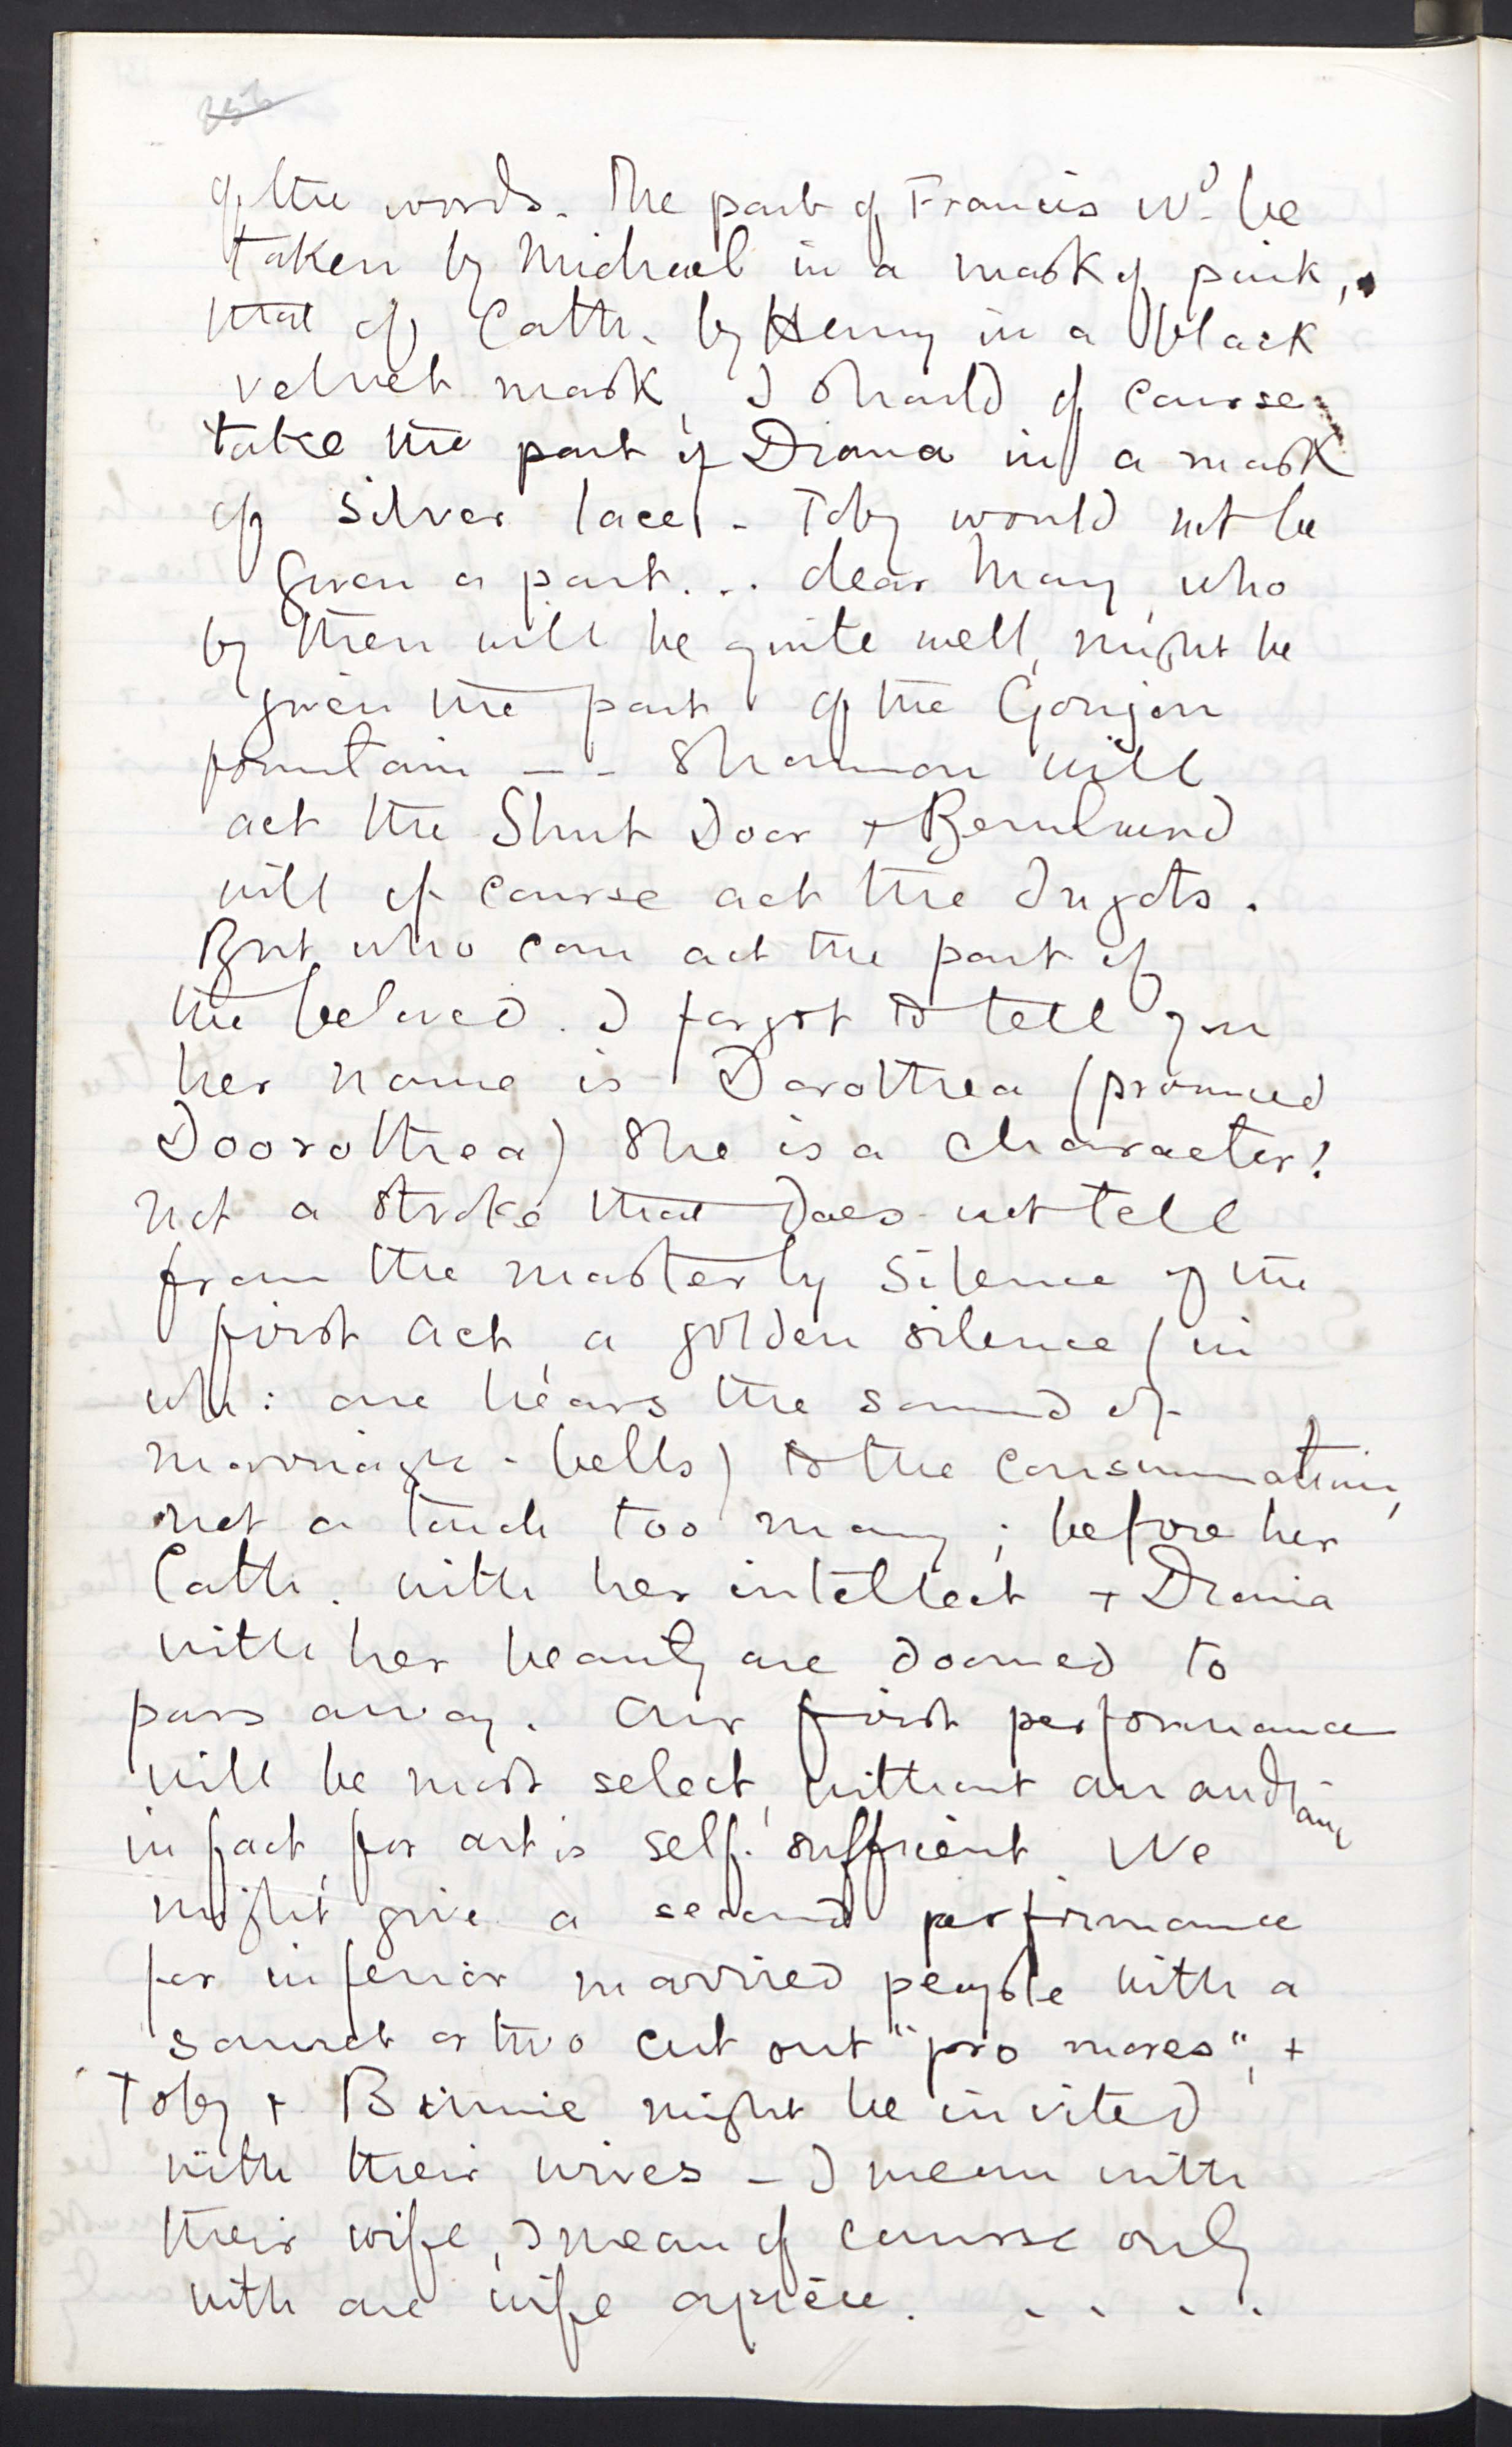 of the words. The part of Francis wd be
taken by Michael in a mask of pink,
that of Cath. by Henry in a black
velvet mask, I should of course
take the part of Diana in a mask
of silver lace. - Toby would not be
given a part... dear Mary, who
by then will be quite well, might be
given the part of the Goujon
fountain -- Shannon will
act the Shut Door +
will of course act the
But who can act the part of
the beloved. I forgot to tell you
her name is Dorothea (pronounced
Doorothea) She is a character!
not a stroke that does not tell
from the masterly silence of the
first act, a golden silence (in
wh: one hears the sound of
marriage-bells) to the consummation,
not a touch too many; before her
Cath. with her intellect + Diana
with her beauty are doomed to
pass away. Our first performance
will be most select, without an aud-
in fact, for art is self-sufficient. We
might give a second performance
for inferior married people with a
sonnet or two cut out "pro mores", +
Toby + Binnie might be invited
with their wives - I mean with
their wife, I mean of course only
with one wife apiece. . . . .